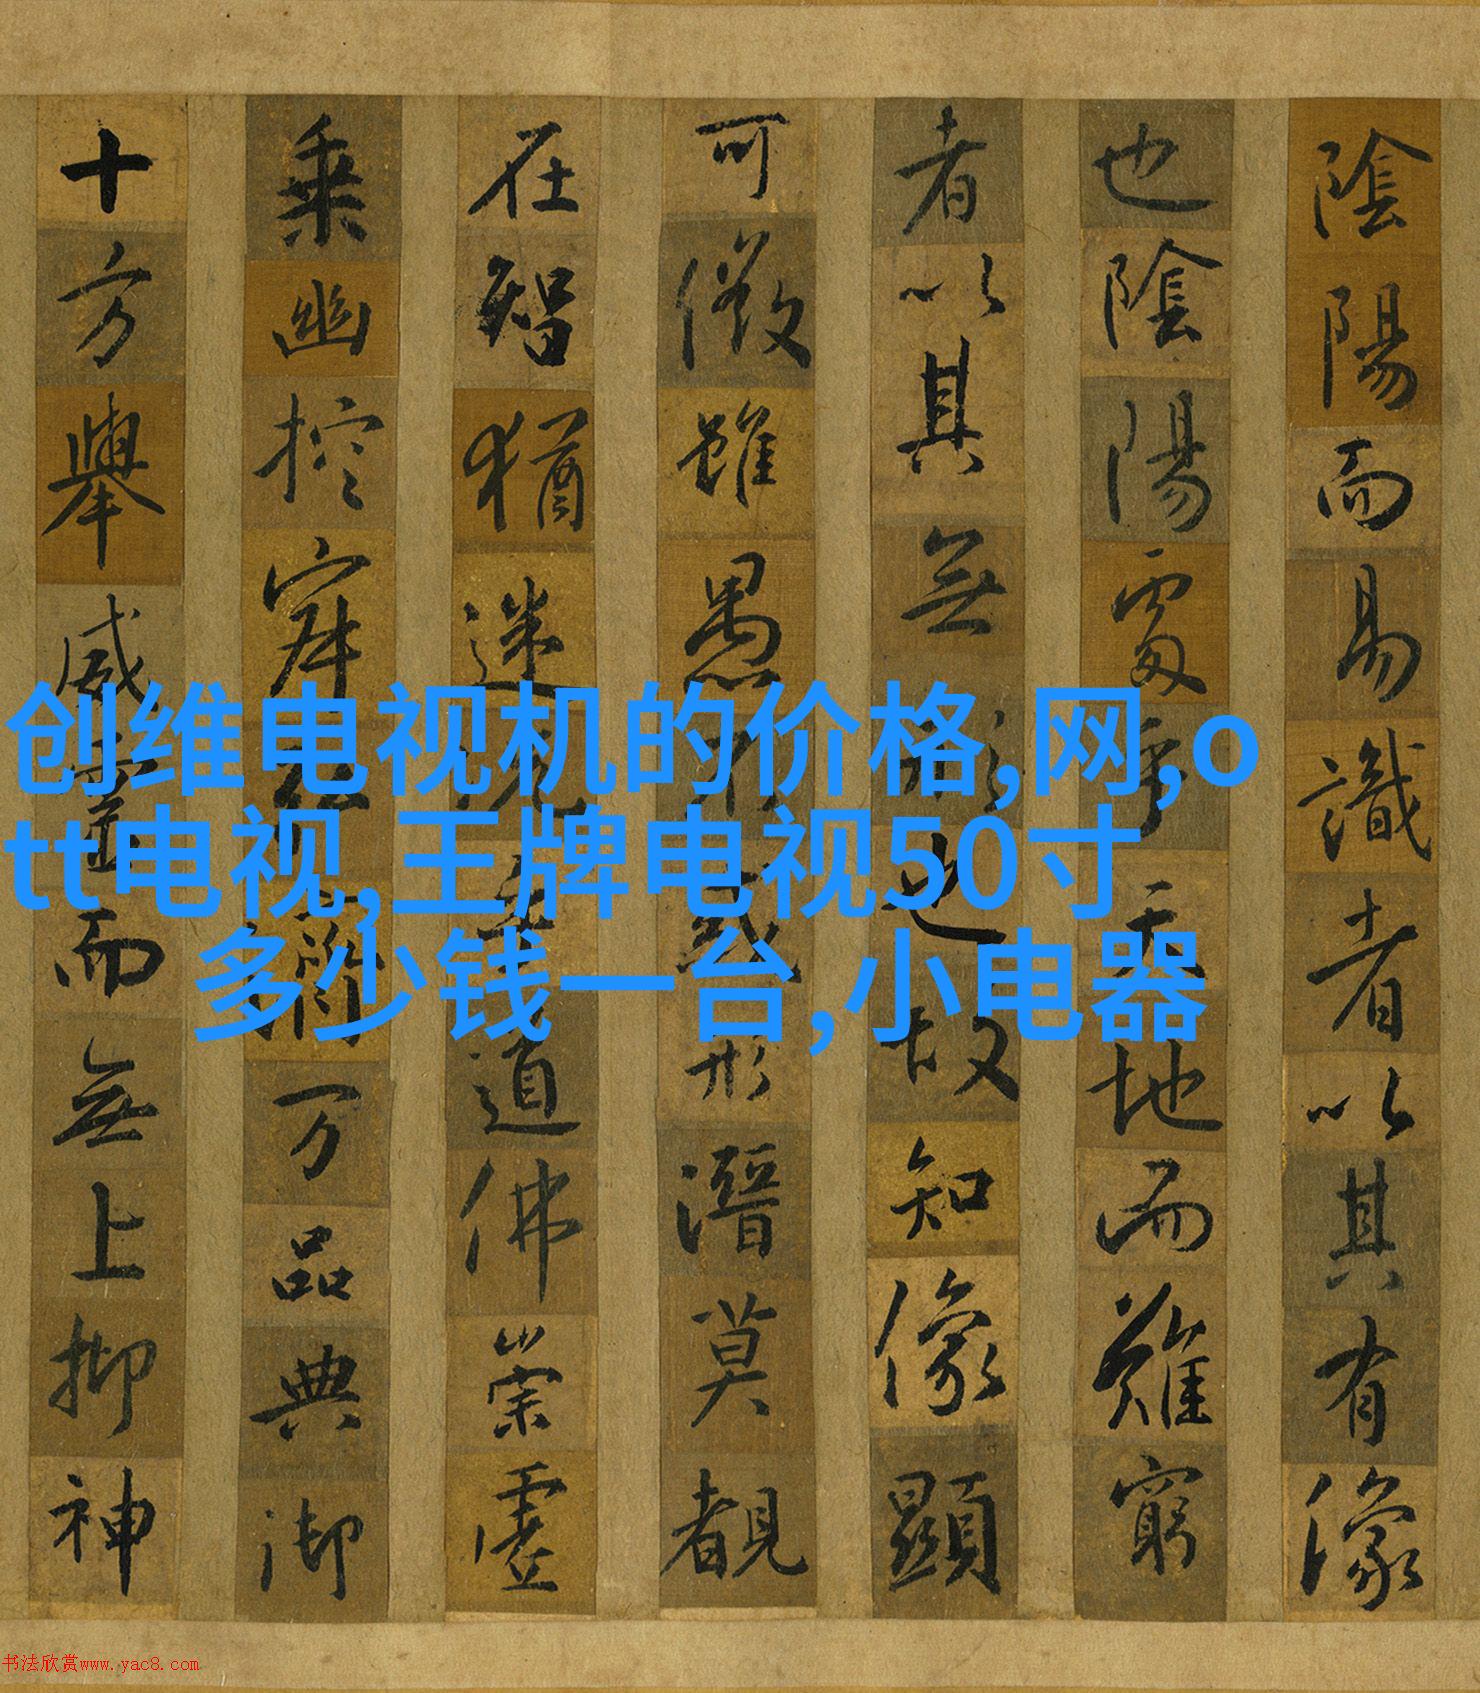 陰陽而易識者以其有像
也陰陽處乎天地而難窮
者以其無形也故知像顯
可徵雖愚不惑形潛莫覩
在智猶迷況乎道佛崇虛
乘幽控寂弘濟万品典御
十方舉威靈而無上抑神
创维电视机的价格,网,o
tt电视,王牌电视50寸
多少钱一台,小电器
书法欣赏www.yac8.com